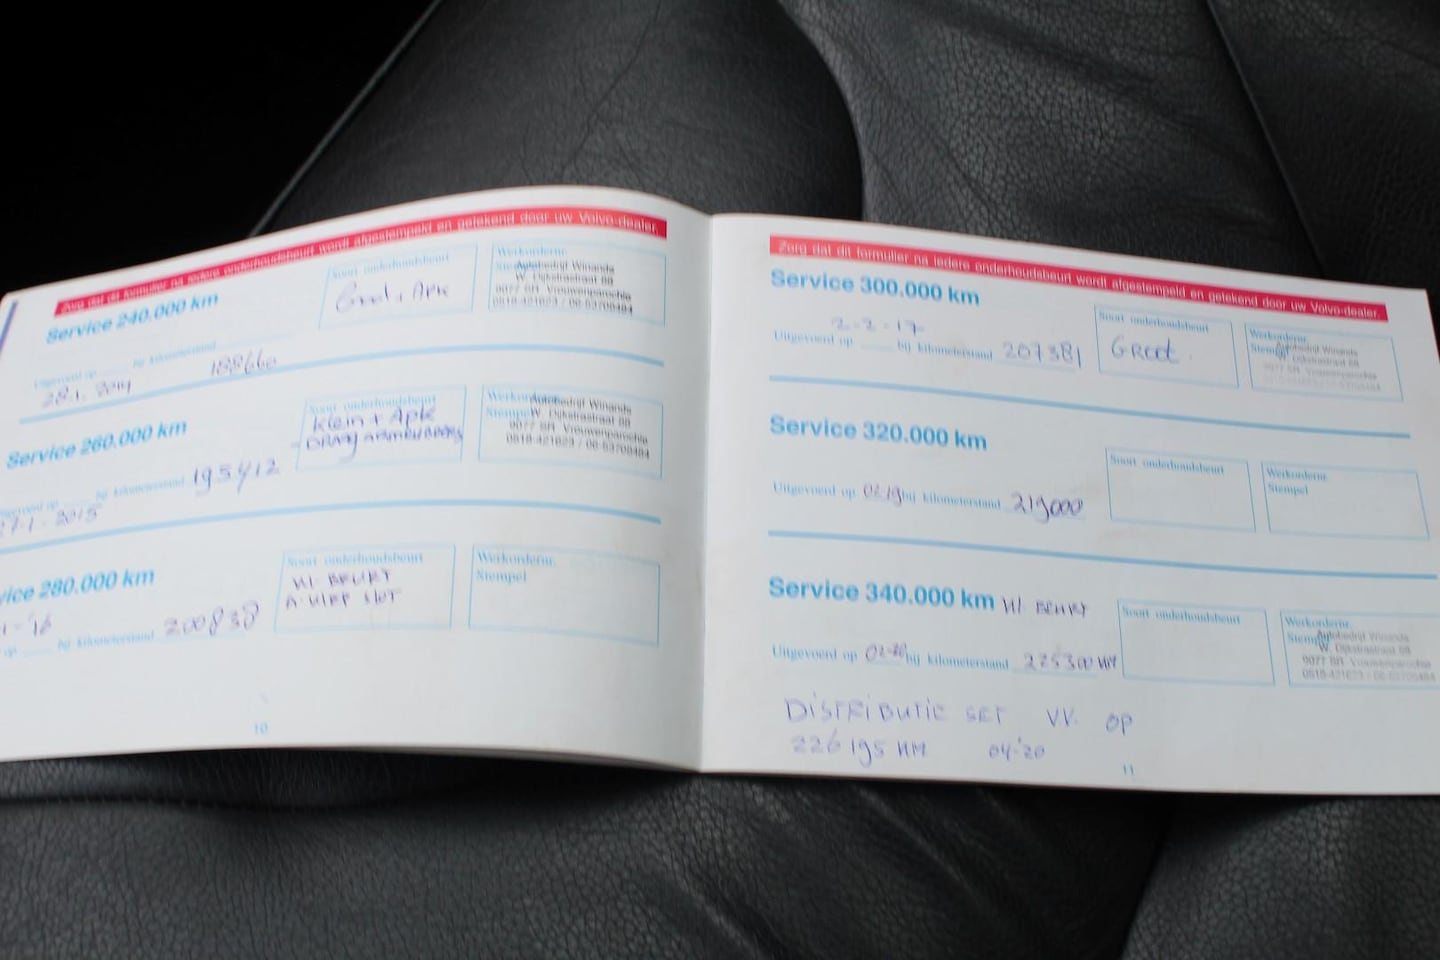 Zorg dat dit formulier na iedere onderhoudsbeurt wordt afgestempeld en getekend door uw Volvo-dealer.
Service 240.000 km
Soort onderhoudsbeurt
Apk
Werkordernr.
Stempel
Autobedrijf Winanda
W. Dijkstrastraat 88
9077 SR Vrouwenparochie
0518-421623 / 06-53705484
Uitgevoerd op bij kilometerstand
28.1. 2014
Service 260.000 km
Soort onderhoudsbeurt
Klein + Apk
Werkordernr.
Stempel
Autobedrijf Winanda
W. Dijkstrastraat 88
9077 SR Vrouwenparochie
0518-421623 / 06-53705484
bij kilometerstand 195412
2015
vice 280.000 km
Soort onderhoudsbeurt
KL. BEURT
Werkordernr.
Stempel
'16
op bij kilometerstand 200838
10
Zorg dat dit formulier na iedere onderhoudsbeurt wordt afgestempeld en getekend door uw Volvo-dealer.
Service 300.000 km
Soort onderhoudsbeurt
Groot
Werkordernr.
Stempel
Autobedrijf Winanda
W. Dijkstrastraat 88
9077 SR Vrouwenparochie
2-2-17
Uitgevoerd op bij kilometerstand 207381
Service 320.000 km
Soort onderhoudsbeurt
Werkordernr.
Stempel
Uitgevoerd op 02-19 bij kilometerstand 219000
Service 340.000 km KL. BEURT
Soort onderhoudsbeurt
Werkordernr.
Stempel
Autobedrijf Winanda
W. Dijkstrastraat 88
9077 SR Vrouwenparochie
0518-421623 / 06-53705484
Uitgevoerd op 02-20 bij kilometerstand 225300 KM
DISTRIBUTIE SET VV. OP
226195 KM 04-'20
11